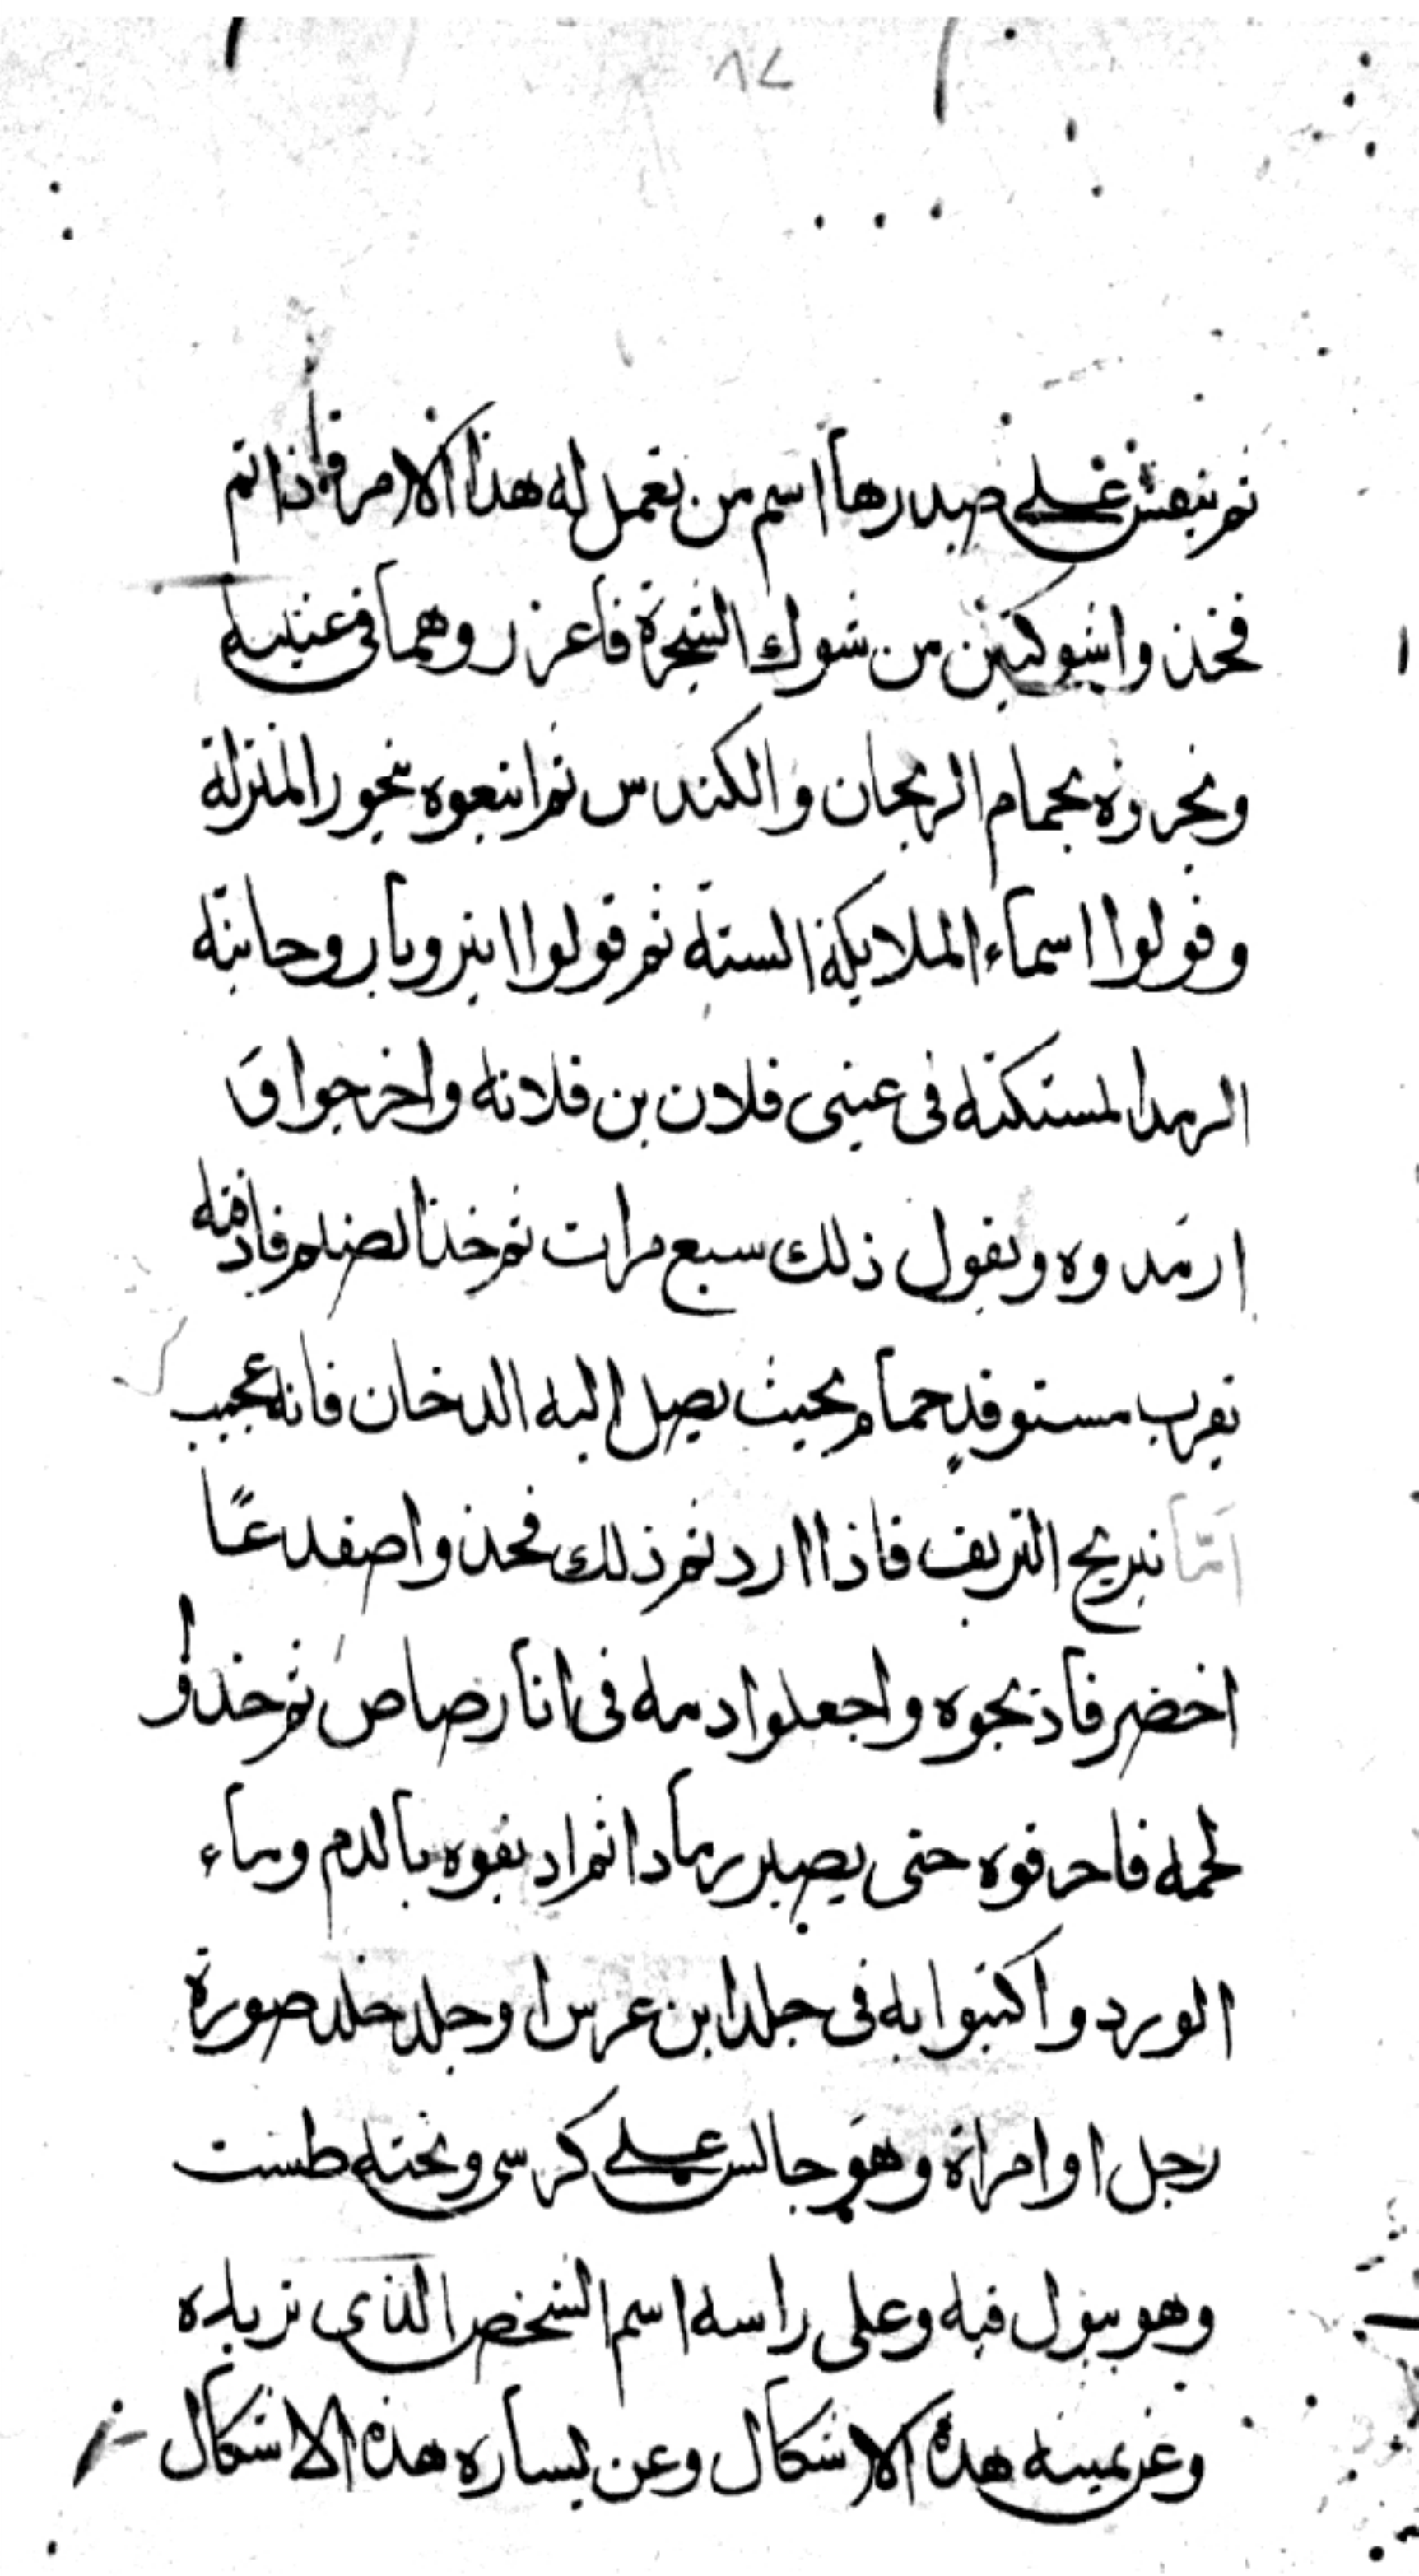 ثم ينقش على صدرها اسم من تعمل له هذا الامر فاذا تم
فخذوا شوكتين من شوك الشجرة فاغرزوهما فى عينيه
وبخروه بحمام الريحان والكندس ثم اتبعوه ببخور المنزلة
وقولوا اسماء الملايكة الستة ثم قولوا ايتزويا روحانية
الرمد المستكنه فى عينى فلان بن فلانه واخرجوا و
ارمدوه ويقول ذلك سبع مرات ثم خذ الصنم فادفنه
بقرب مستوقد حمام بحيث يصل اليه الدخان فانه عجيب
امّا نيرنج النزيف فاذا اردتم ذلك فخذوا ضفدعًا
اخضر فاذبحوه واجعلوا دمه فى انا رصاص ثم خذوا
لحمه فاحرقوه حتى يصير رمادا ثم اديفوه بالدم وماء
الورد واكتبوا به فى جلد ابن عرس او جلد خلد صورة
رجل او امراة وهو جالس على كرسى وتحته طست
وهو يبول فيه وعلى راسه اسم الشخص الذى تريده
وعن يمينه هذه الاشكال وعن يساره هذه الاشكال